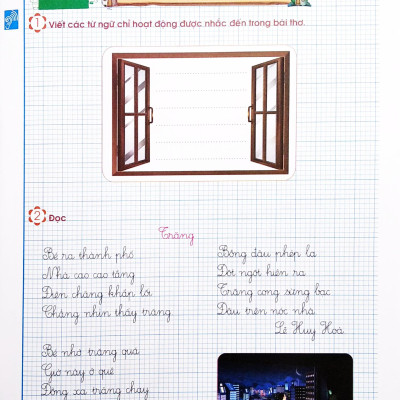 1 Viết các từ ngữ chỉ hoạt động được nhắc đến trong bài thơ.
2 Đọc
Trăng
Bé ra thành phố
Nhà cao cao tầng
Điện chăng khắp lối
Chẳng nhìn thấy trăng.
Bé nhớ trăng quá
Giờ này ở quê
Dòng xa trăng chảy
Bỗng đâu phép lạ
Đột ngột hiện ra
Trăng cong sừng bạc
Đậu trên nóc nhà
Lê Huy Hoà